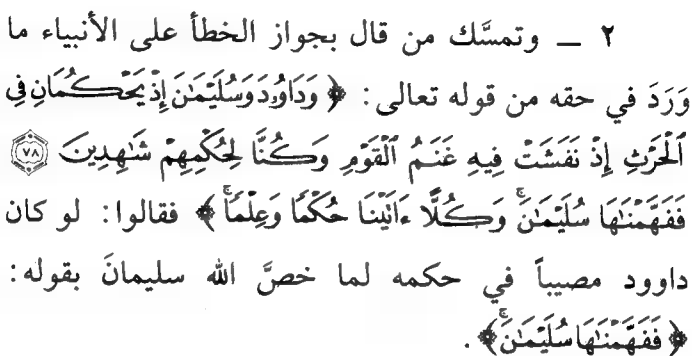 ٢ ــ وتمسَّك من قال بجواز الخطأ على الأنبياء ما
وَرَدَ في حقه من قوله تعالى: ﴿ وَدَاوُۥدَ وَسُلَيْمَٰنَ إِذْ يَحْكُمَانِ فِي
ٱلْحَرْثِ إِذْ نَفَشَتْ فِيهِ غَنَمُ ٱلْقَوْمِ وَكُنَّا لِحُكْمِهِمْ شَٰهِدِينَ ﴿٧٨﴾
فَفَهَّمْنَٰهَا سُلَيْمَٰنَۚ وَكُلًّا ءَاتَيْنَا حُكْمًا وَعِلْمًاۚ ﴾ فقالوا: لو كان
داوود مصيباً في حكمه لما خصَّ الله سليمانَ بقوله:
﴿ فَفَهَّمْنَٰهَا سُلَيْمَٰنَۚ ﴾.